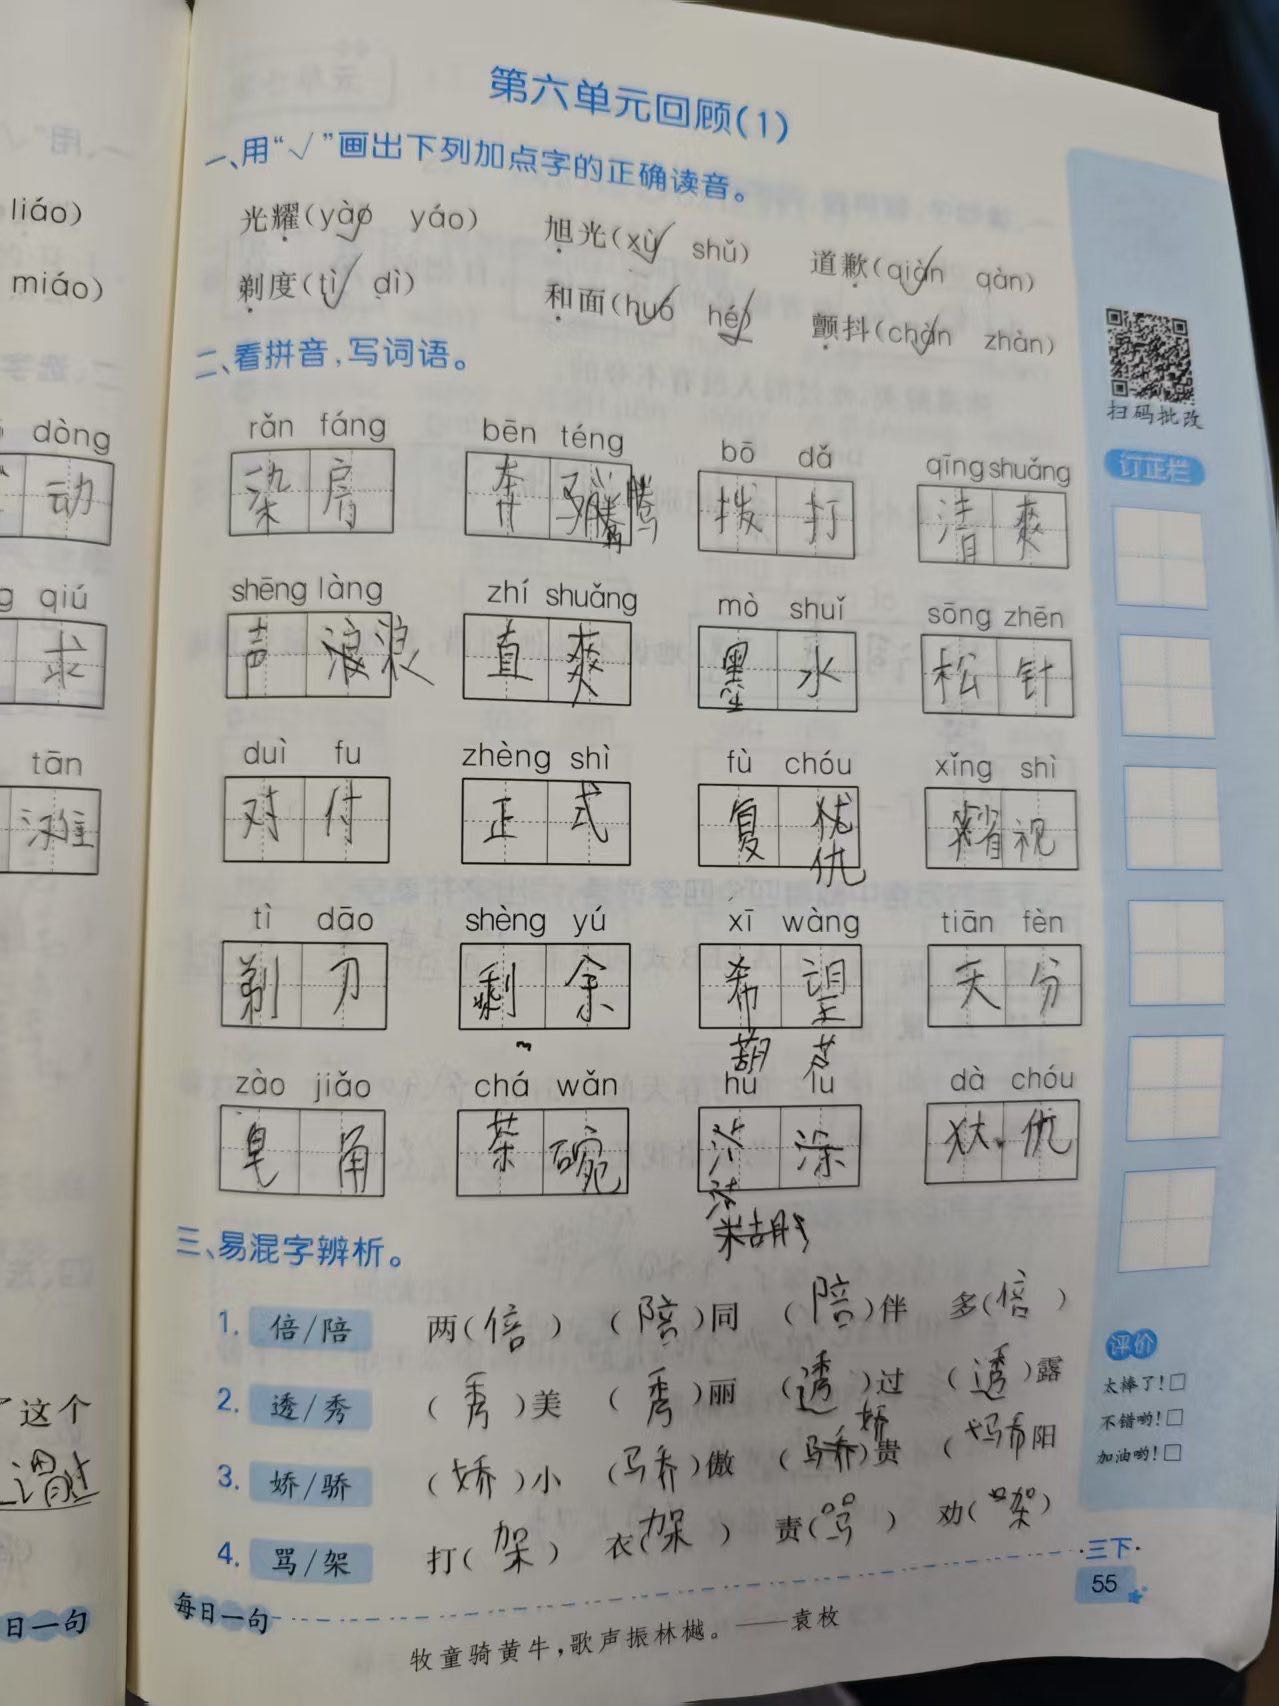 第六单元回顾(1)
一、用“√”画出下列加点字的正确读音。
光耀(yào yáo) 旭光(xù shǔ) 道歉(qiàn qàn)
剃度(tì dì) 和面(huó hé) 颤抖(chàn zhàn)
二、看拼音,写词语。
rǎn fáng bēn téng bō dǎ qīng shuǎng
染房 奔 腾 拨打 清爽
shēng làng zhí shuǎng mò shuǐ sōng zhēn
声浪浪 直爽 墨水 松针
duì fu zhèng shì fù chóu xǐng shì
对付 正式 复 仇 省视
tì dāo shèng yú xī wàng tiān fèn
剃刀 剩余 希望 天分
葫芦
zào jiǎo chá wǎn hú lu dà chóu
皂角 茶碗 涂
三、易混字辨析。
1. 倍/陪 两(倍) (陪)同 (陪)伴 多(倍)
2. 透/秀 (秀)美 (秀)丽 (透)过 (透)露
3. 娇/骄 (娇)小 (骄)傲 (骄)贵 娇 ( 阳
4. 骂/架 打(架) 衣(架) 责(骂) 劝(架)
每日一句
牧童骑黄牛,歌声振林樾。——袁枚
扫码批改
订正栏
评价
太棒了!□
不错哟!□
加油哟!□
·三下·
55
liáo)
miáo)
dòng
动
qiú
求
tān
滩
了这个
日一句